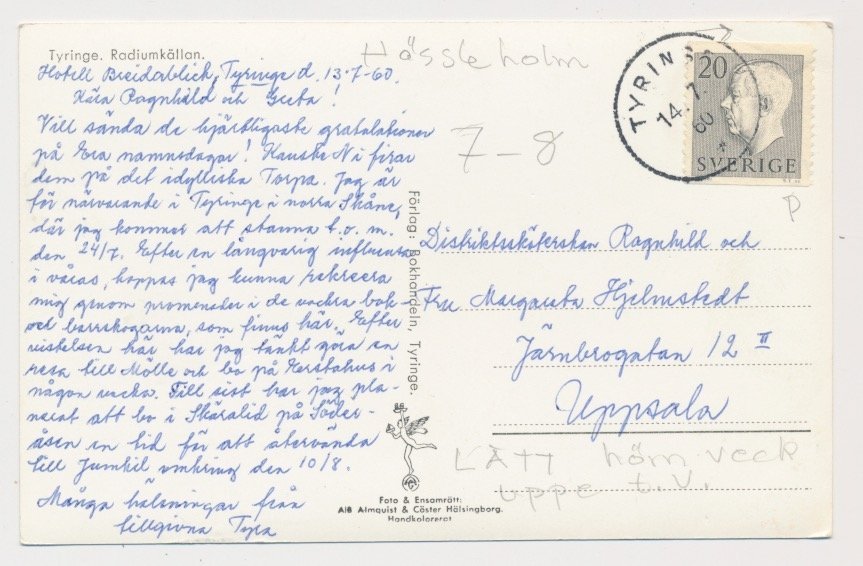 Tyringe. Radiumkällan.
Hotell Breidablick, Tyringe d. 13-7-60.
Kära Ragnhild och Greta!
Vill sända de hjärtligaste gratulationer
på Era namnsdagar! Kanske Ni firar
dem på det idylliska Torpa. Jag är
för närvarande i Tyringe i norra Skåne,
där jag kommer att stanna t.o.m.
den 24/7. Efter en långvarig influensa
i våras, hoppas jag kunna rekreera
mig genom promenader i de vackra bok-
och barrskogarna, som finns här. Efter
vistelsen här har jag tänkt göra en
resa till Mölle och bo på
någon vecka. Till sist har jag pla-
nerat att bo i Skäralid på Söder-
åsen en tid för att återvända
till Jumkil omkring den 10/8.
Många hälsningar från
tillgivna Tyra
Förlag: Bokhandeln, Tyringe.
Foto & Ensamrätt:
A/B Almquist & Cöster Hälsingborg.
Handkolorerat
Hässleholm
7-8
TYRINGE
14.7.
60
20
SVERIGE
P
Distriktssköterskan Ragnhild och
Fru Margareta Hjelmstedt
Järnbrogatan 12 II
Uppsala
LÄTT hörn veck
uppe t.v.